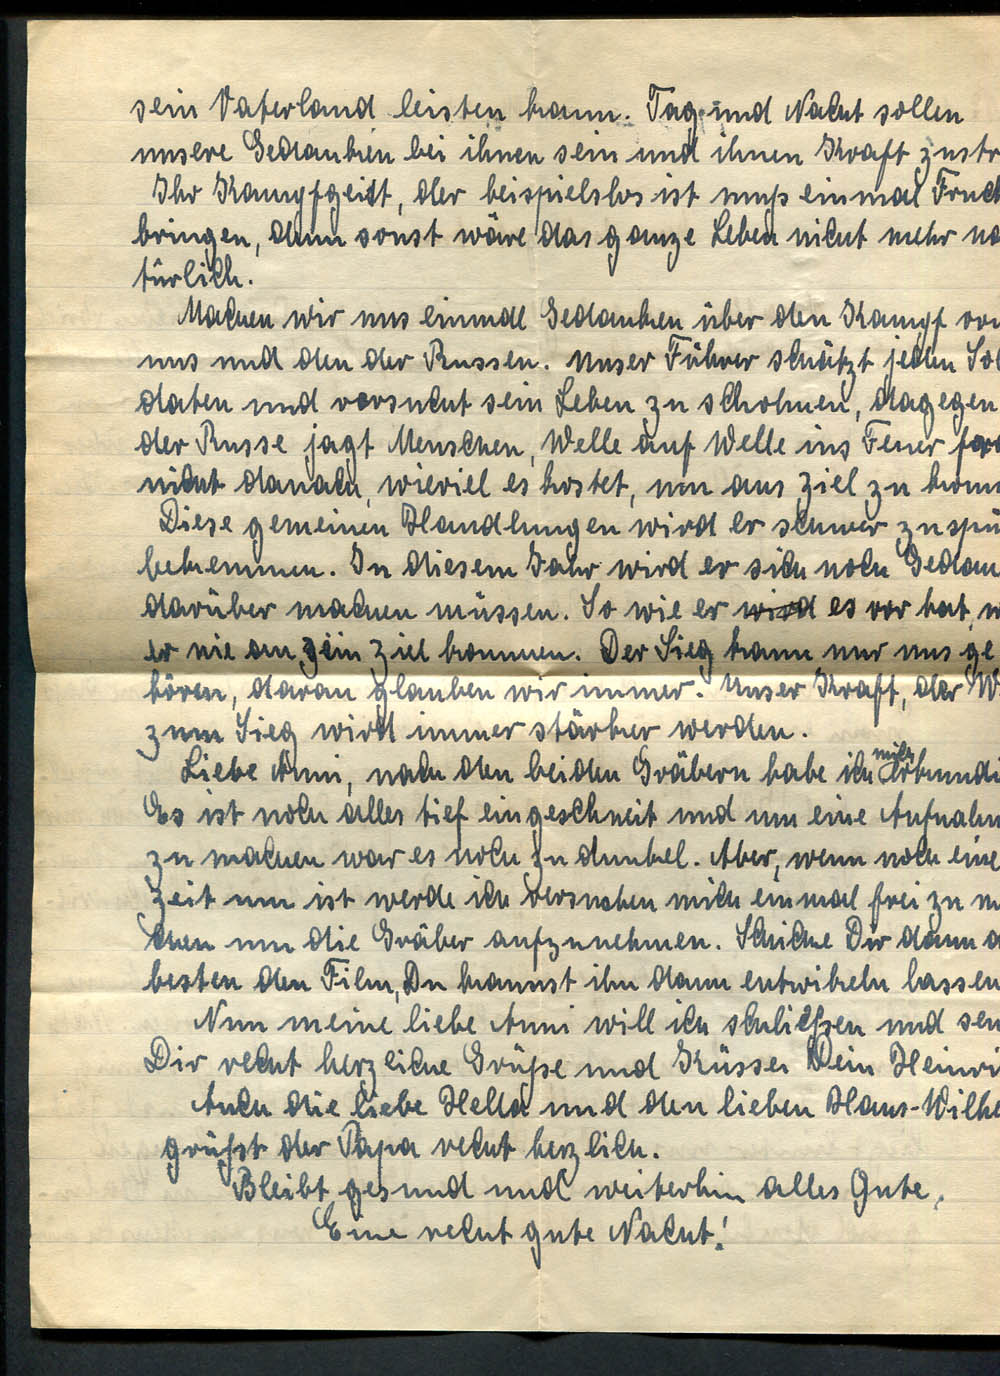 sein Vaterland leisten kann. Tag und Nacht sollen
unsere Gedanken bei ihnen sein und ihnen Kraft zustr
Ihr Kampfgeist, der beispielslos ist muß einmal Fruch
bringen, denn sonst wäre das ganze Leben nicht mehr na
türlich.
Machen wir uns einmal Gedanken über den Kampf von
uns und den der Russen. Unser Führer schätzt jeden Sol
daten und versucht sein Leben zu schohnen, dagegen
der Russe jagt Menschen, Welle auf Welle ins Feuer
nicht danach, wieviel es kostet, um ans Ziel zu komm
Diese gemeinen Handlungen wird er schwer zu spü
bekemmen. In diesem Jahr wird er sich noch Gedan
darüber machen müssen. So wie er wird es vor hat, w
er nie an sein Ziel kommen. Der Sieg kann nur uns ge
hören, daran glauben wir immer. Unser Kraft, der Wi
zum Sieg wird immer stärker werden.
Liebe Anni, nach den beiden Gräbern habe ich mich erkundi
Es ist noch alles tief eingeschneit und um eine Aufnahm
zu machen war es noch zu dunkel. Aber, wenn noch eine
Zeit um ist werde ich versuchen mich einmal frei zu m
chen um die Gräber aufzunehmen. Schicke Dir dann a
besten den Film, Du kannst ihn dann entwikeln lassen
Nun meine liebe Anni will ich schließen und sen
Dir recht herzliche Grüße und Küsse. Dein Heinri
Auch die liebe Hella und den lieben Hans-Wilhe
grüßt der Papa recht herzlich.
Bleibt gesund und weiterhin alles Gute,
Eine recht gute Nacht!